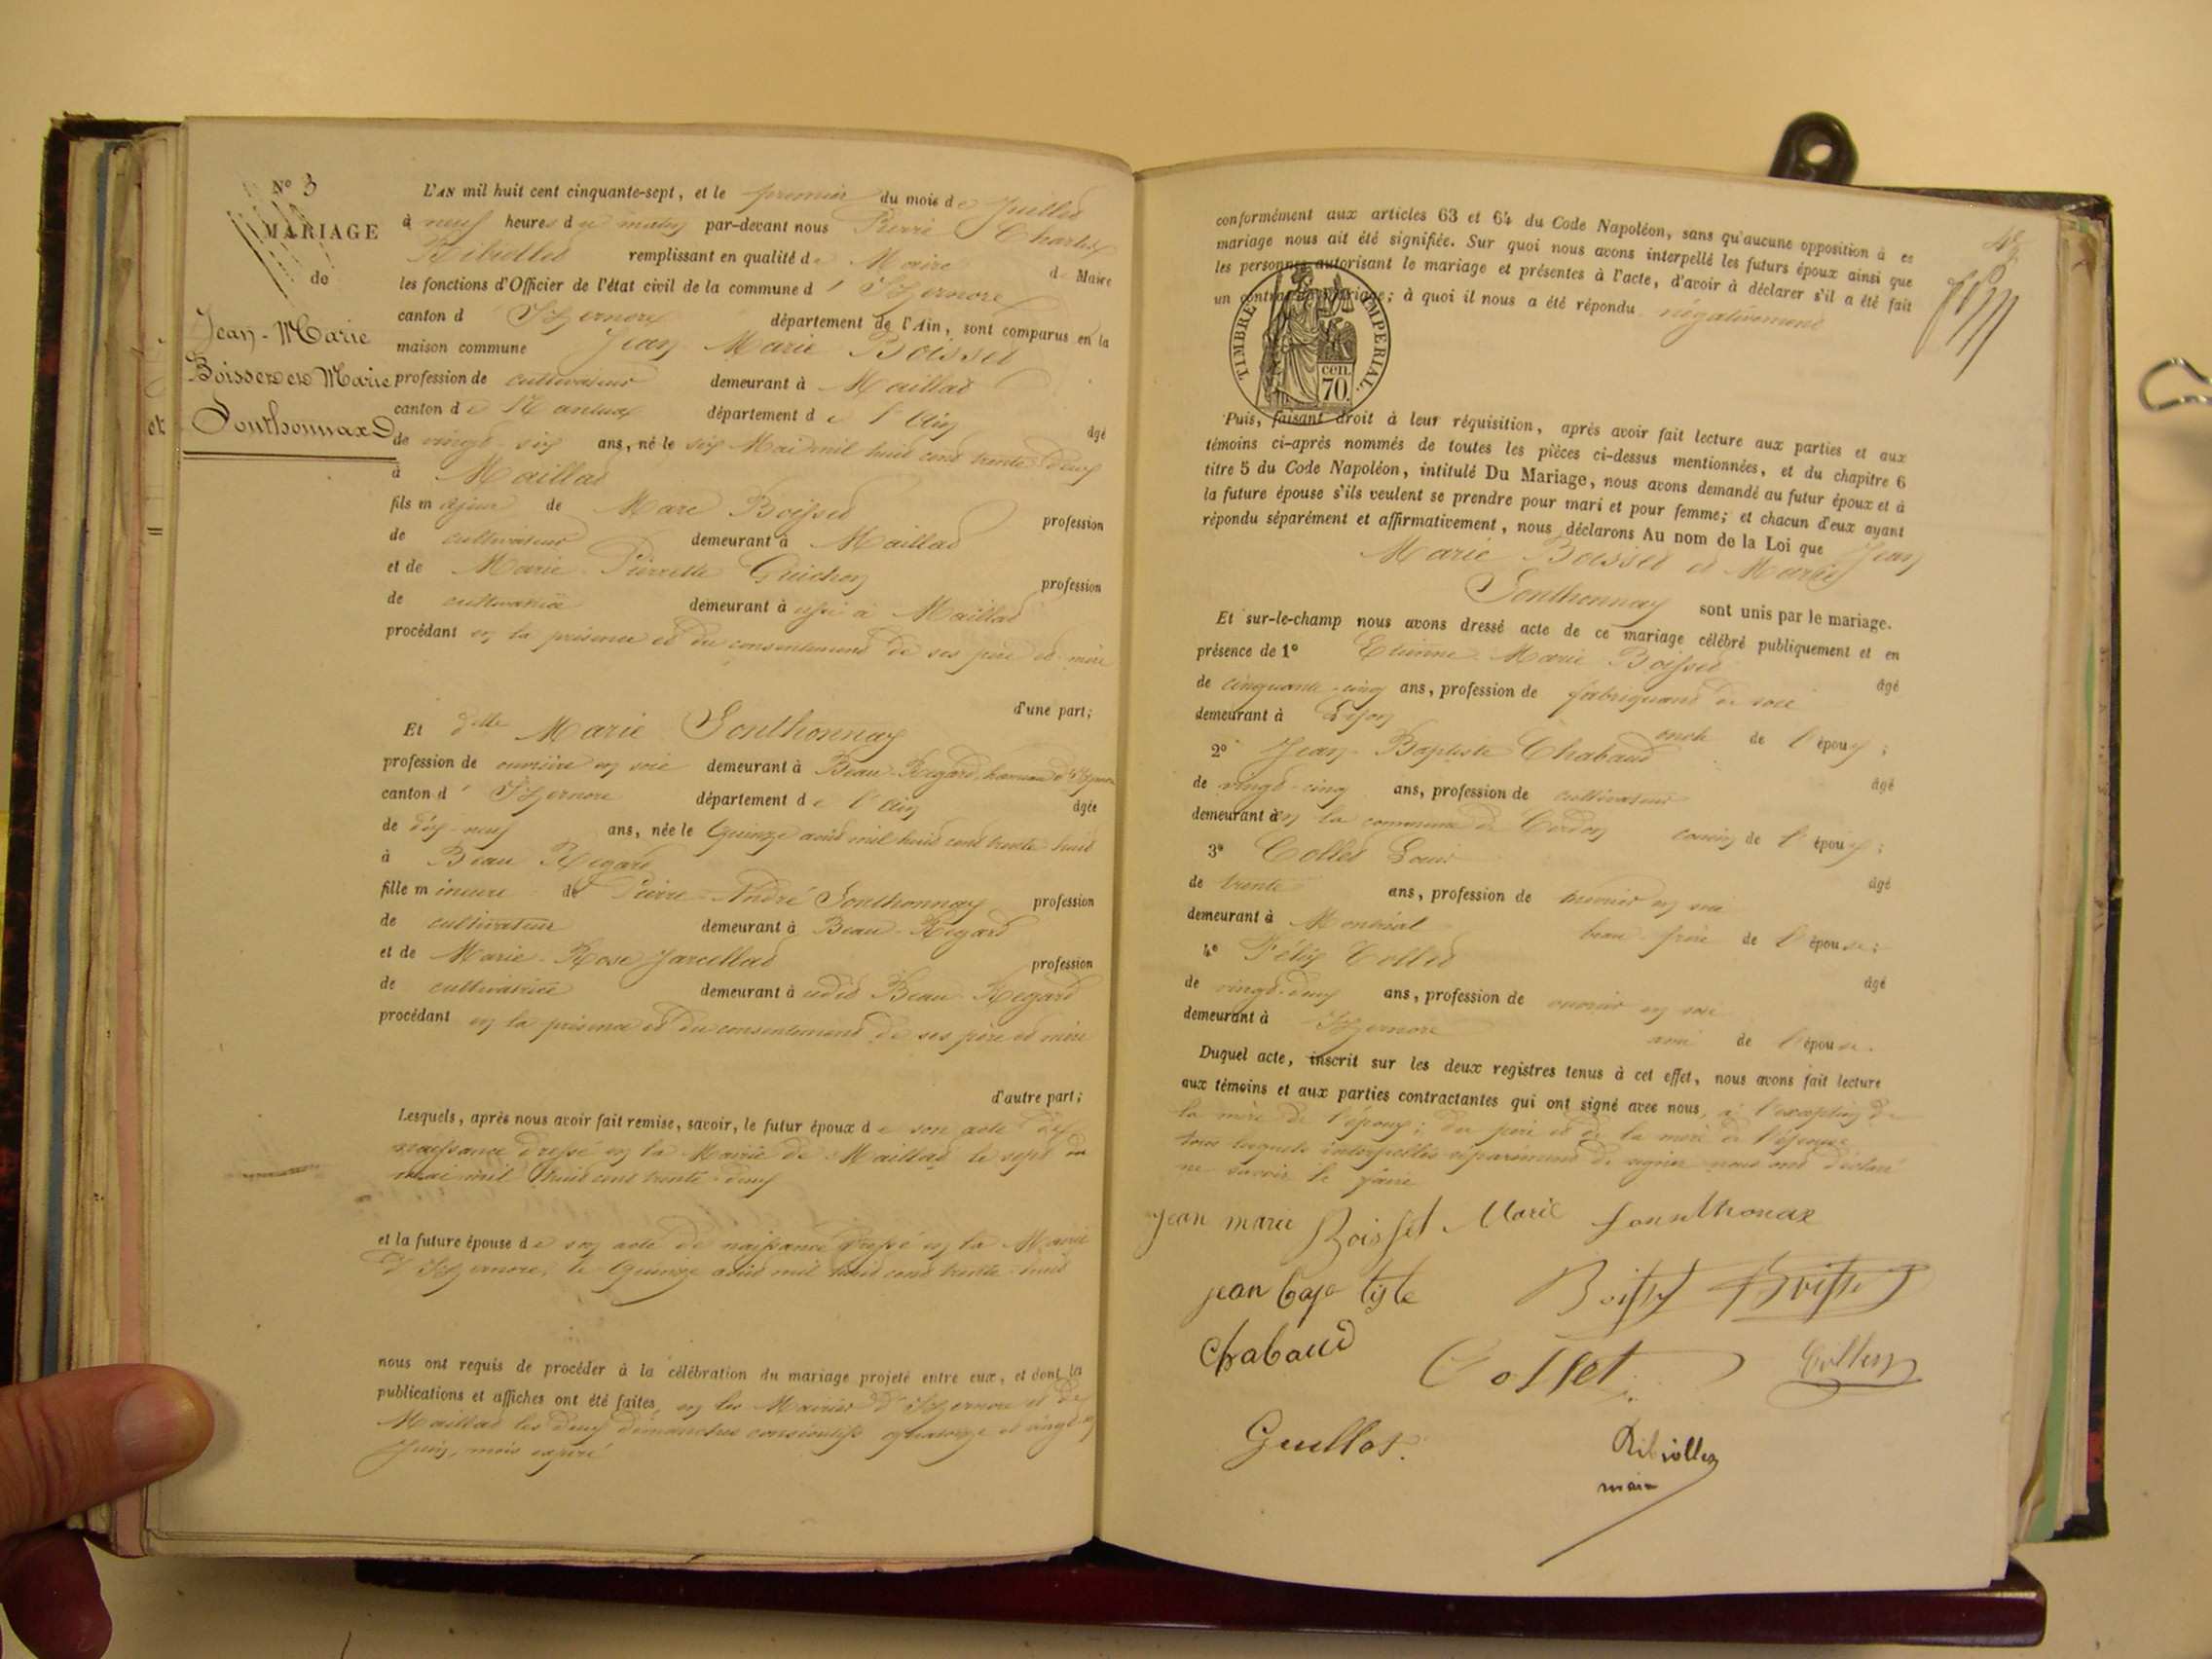 N° 3
MARIAGE
de
Jean-Marie
Boisset et Marie
Sonthonnax
et
L'AN mil huit cent cinquante-sept, et le premier du mois de Juillet
à neuf heures du matin par-devant nous Pierre Charles
Ribiollet remplissant en qualité de Maire d Maire
les fonctions d'Officier de l'état civil de la commune d' Izernore
canton d' Izernore département de l'Ain, sont comparus en la
maison commune Jean Marie Boisset
profession de cultivateur demeurant à Maillat
canton de Nantua département de l'Ain âgé
de vingt-six ans, né le six Mai mil huit cent trente deux
à Maillat
fils majeur de Marc Boisset profession
de cultivateur demeurant à Maillat
et de Marie Pierrette Guichon profession
de cultivatrice demeurant à aussi à Maillat
procédant en la présence et du consentement de ses père et mère
d'une part;
Et dlle Marie Sonthonnax
profession de ouvrière en soie demeurant à Beau-Regard, hameau d'Izernore
canton d' Izernore département de l'Ain âgée
de dix-neuf ans, née le Quinze août mil huit cent trente-huit
à Beau Regard
fille mineure de Pierre-André Sonthonnax profession
de cultivateur demeurant à Beau-Regard
et de Marie-Rose Jarcellat profession
de cultivatrice demeurant à udit Beau-Regard
procédant en la présence et du consentement de ses père et mère
d'autre part;
Lesquels, après nous avoir fait remise, savoir, le futur époux de son acte de
naissance dressé en la Mairie de Maillat le sept du
mai mil huit cent trente-deux
et la future épouse de son acte de naissance dressé en la Mairie
d'Izernore, le Quinze août mil huit cent trente-huit
nous ont requis de procéder à la célébration du mariage projeté entre eux, et dont la
publications et affiches ont été faites, en les Mairies d'Izernore et de
Maillat les deux dimanches consécutifs quatorze et vingt-un
Juin, mois expiré
conformément aux articles 63 et 64 du Code Napoléon, sans qu'aucune opposition à ce
mariage nous ait été signifiée. Sur quoi nous avons interpellé les futurs époux ainsi que
les personnes autorisant le mariage et présentes à l'acte, d'avoir à déclarer s'il a été fait
un contrat de mariage; à quoi il nous a été répondu négativement
TIMBRE IMPERIAL
cen.
70.
Puis, faisant droit à leur réquisition, après avoir fait lecture aux parties et aux
témoins ci-après nommés de toutes les pièces ci-dessus mentionnées, et du chapitre 6
titre 5 du Code Napoléon, intitulé Du Mariage, nous avons demandé au futur époux et à
la future épouse s'ils veulent se prendre pour mari et pour femme; et chacun d'eux ayant
répondu séparément et affirmativement, nous déclarons Au nom de la Loi que Jean
Marie Boisset et Marie
Sonthonnax sont unis par le mariage.
Et sur-le-champ nous avons dressé acte de ce mariage célébré publiquement et en
présence de 1° Etienne Marie Boisset âgé
de cinquante-cinq ans, profession de fabriquant de soie
demeurant à Lyon oncle de l'époux;
2° Jean-Baptiste Chabaud âgé
de vingt-cinq ans, profession de cultivateur
demeurant à en la commune de Cerdon cousin de l'époux;
3° Collet Louis âgé
de trente ans, profession de ouvrier en soie
demeurant à Montréal beau-frère de l'épouse;
4° Félix Collet âgé
de vingt-deux ans, profession de ouvrier en soie
demeurant à Izernore ami de l'épouse.
Duquel acte, inscrit sur les deux registres tenus à cet effet, nous avons fait lecture
aux témoins et aux parties contractantes qui ont signé avec nous, à l'exception de
la mère de l'époux; du père et de la mère de l'épouse
tous lesquels interpellés séparément de signer nous ont déclaré
ne savoir le faire
Jean marie Boisset Marie Sonnthonax
jean bap tiste Boisset Boisset
Chabaud Collet
Guillot. Ribiollet
maire